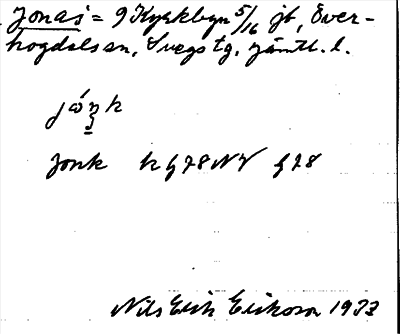 Jonas = 9 Kyrkbyn 5/16 jb, Över-
hogdals sn, Svegs tg, Jämtl. l.
Jonk h q 78 NV q 78
Nils Erik Erikson 1933